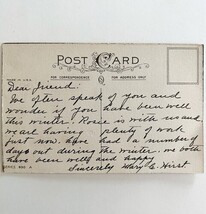 POST CARD
FOR CORRESPONDENCE FOR ADDRESS ONLY
MADE IN U.S.A.
Dear Friend
We often speak of you and
wonder if you have been well
this winter. is with us and
we are having plenty of work
just now. have had a number of
days out during the winter. we both
have been well and happy
Sincerely Mary E. Hirst